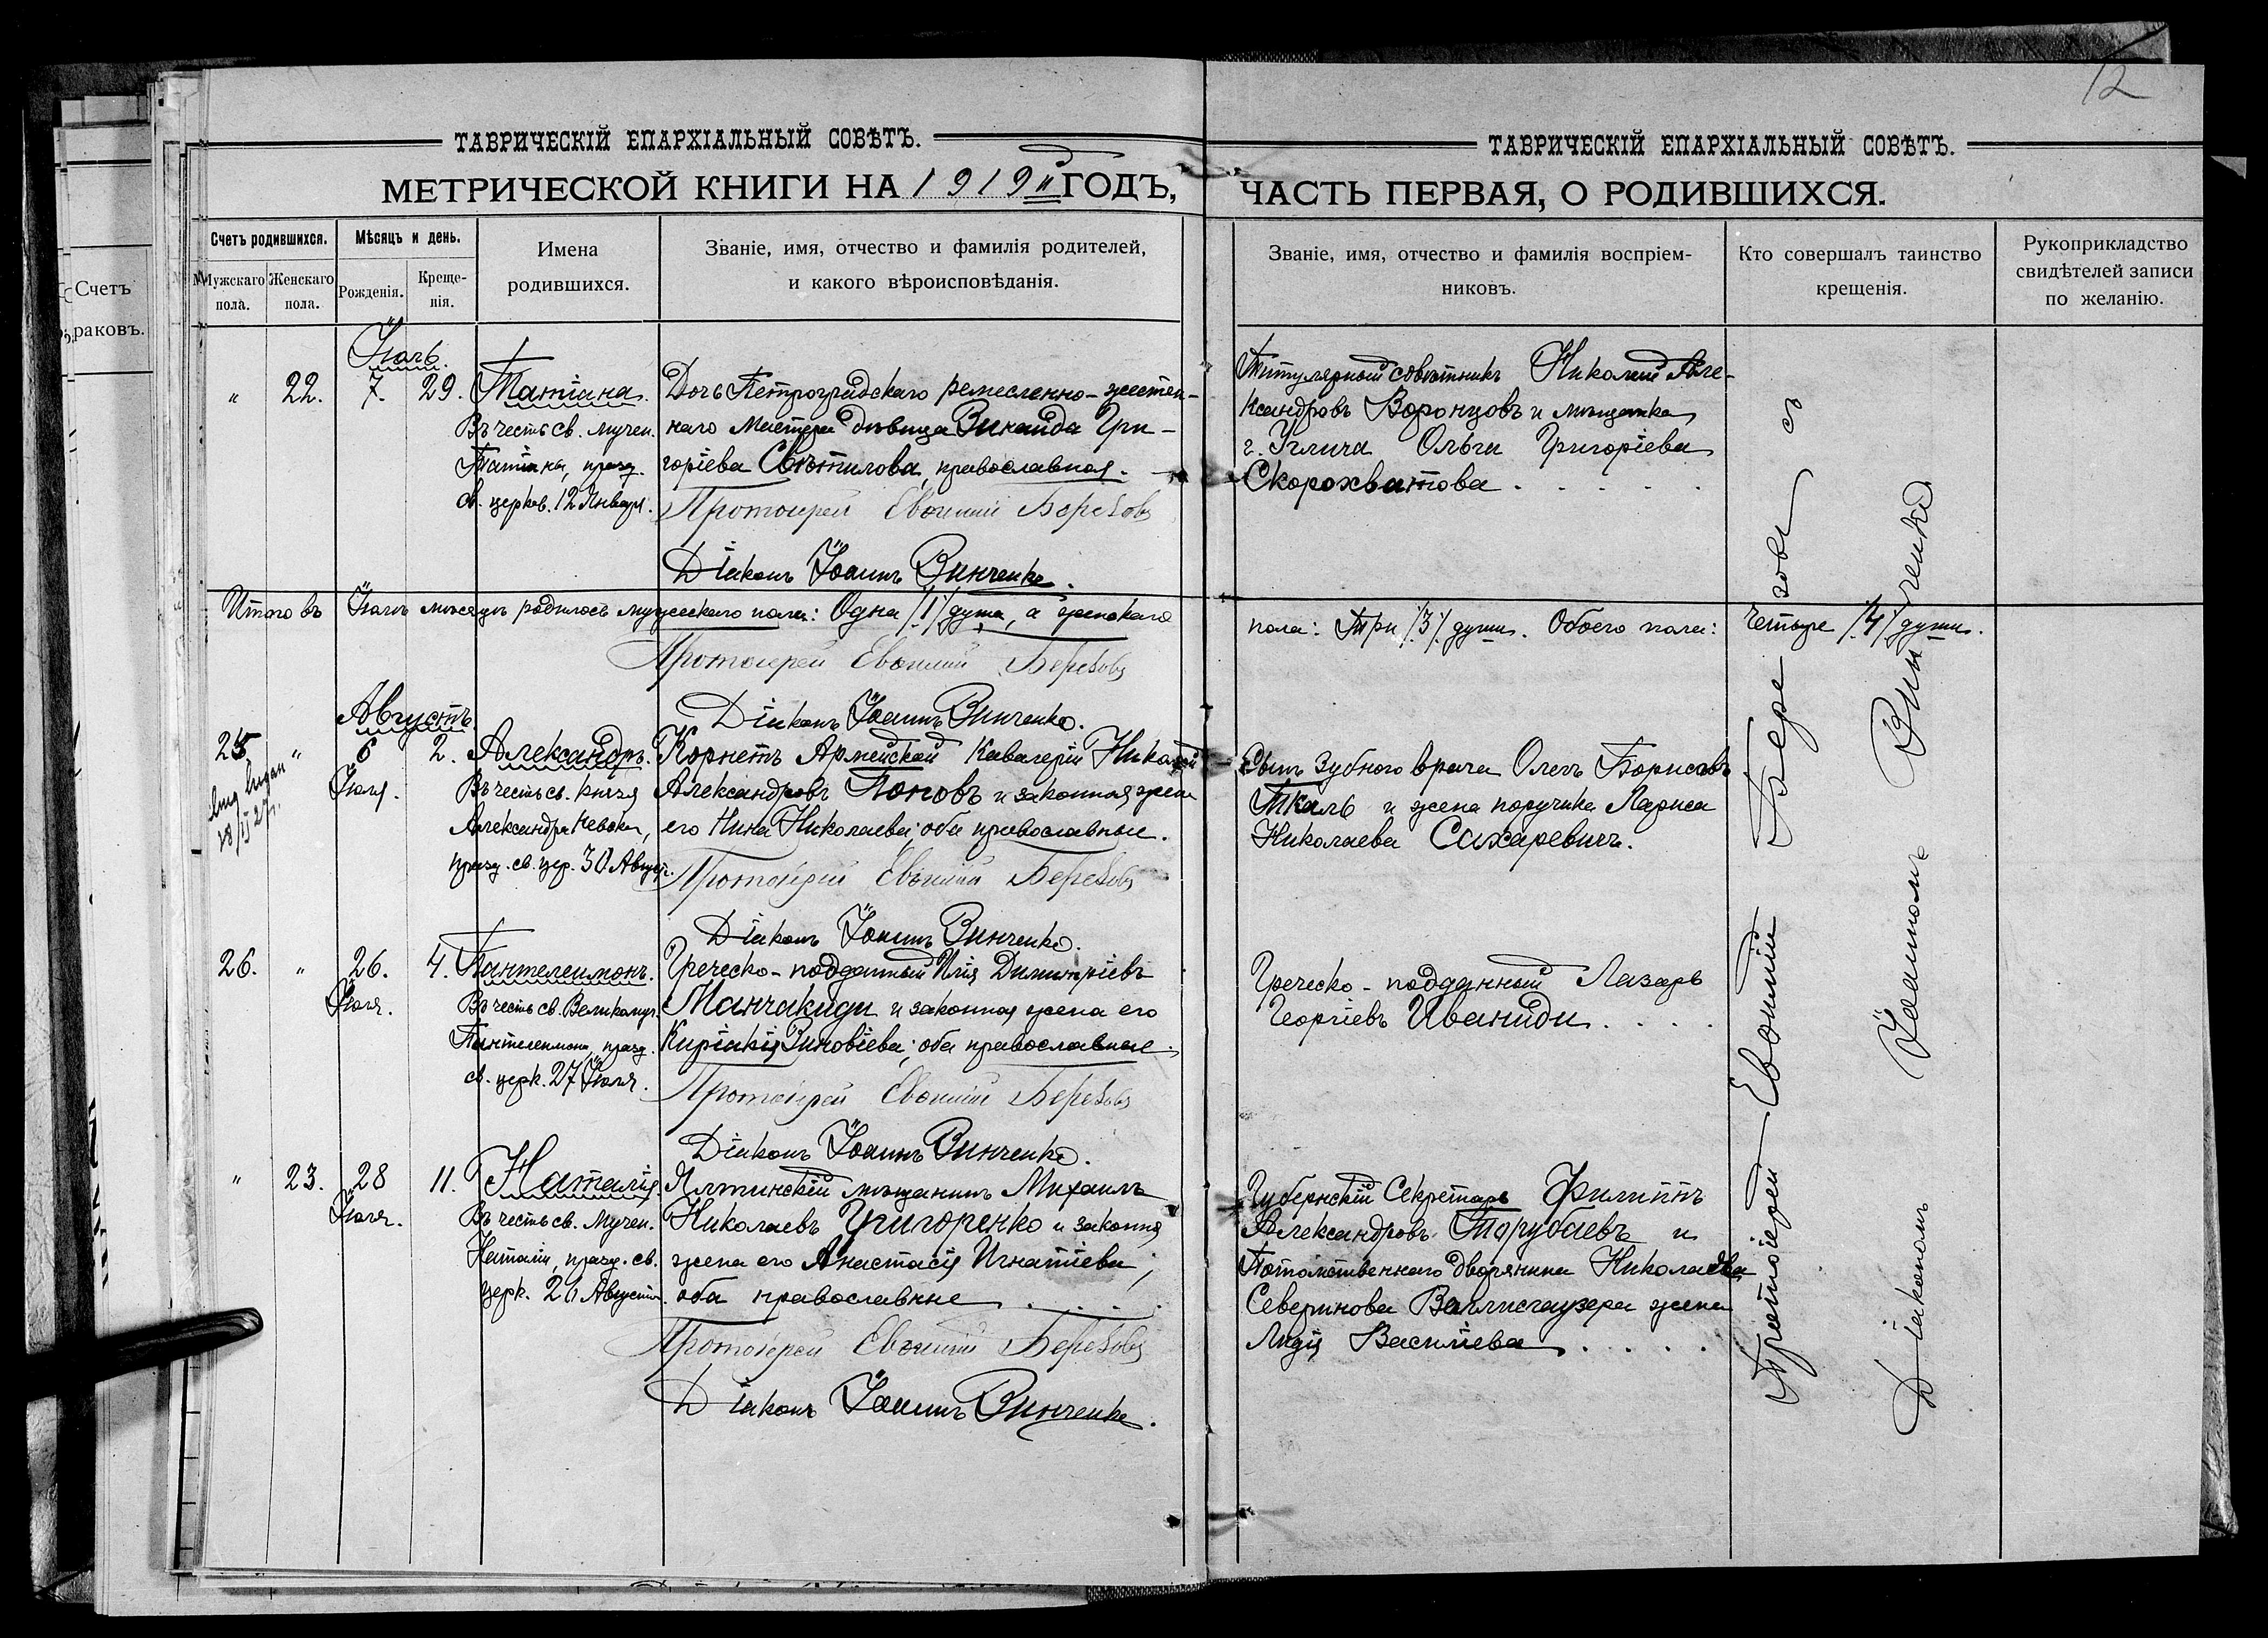 12
ТАВРИЧЕСКІЙ ЕПАРХІАЛЬНЫЙ СОВѢТЪ.
МЕТРИЧЕСКОЙ КНИГИ НА 1919й ГОДЪ,
Счетъ родившихся.
Мужскаго пола.
Женскаго пола.
Мѣсяцъ и день.
Рожденія.
Креще-
нія.
Имена
родившихся.
Званіе, имя, отчество и фамилія родителей,
и какого вѣроисповѣданія.
Счетъ
раковъ.
Іюль.
" 22. 7. 29.
Татіана.
Въ честь св. мучен.
Татіаны, празд.
св. церков. 12 Января.
Дочь Петроградскаго ремесленно-
наго мастера дѣвица Зинаида Гри-
горіева Свѣтилова, православная.
Протоіерей Евѳимій Березовъ
Діаконъ Іоаннъ Винченко.
Итого въ Іюлѣ мѣсяцѣ родилось мужескаго пола: Одна /1/ душа, а женскаго
Протоіерей Евѳимій Березовъ
Діаконъ Іоаннъ Винченко.
Августъ
25 " 6 2.
Іюля.
Александръ.
Въ честь св. князя
Александра Невска,
празд. св. цер. 30 Август.
Корнетъ Армейской Кавалеріи Николай
Александровъ Поповъ и законная жена
его Нина Николаева; оба православные.
Протоіерей Евѳимій Березовъ
Діаконъ Іоаннъ Винченко.
26. " 26. 4.
Іюля.
Пантелеимонъ.
Въ честь св. Великомуч.
Пантелеимона, празд.
св. церк. 27 Іюля.
Греческо-подданный Илія Димитріевъ
Манчакиди и законная жена его
Киріакія Зиновіева; оба православные.
Протоіерей Евѳимій Березовъ
Діаконъ Іоаннъ Винченко.
" 23. 28 11.
Іюля.
Наталія.
Въ честь св. Мучен.
Наталіи, празд. св.
церк. 26 Августа.
Ялтинскій мѣщанинъ Михаилъ
Николаевъ Григоренко и законная
жена его Анастасія Игнатіева;
оба православные . . . .
Протоіерей Евѳимій Березовъ
Діаконъ Іоаннъ Винченко.
ТАВРИЧЕСКІЙ ЕПАРХІАЛЬНЫЙ СОВѢТЪ.
ЧАСТЬ ПЕРВАЯ, О РОДИВШИХСЯ.
Званіе, имя, отчество и фамилія воспріем-
никовъ.
Кто совершалъ таинство
крещенія.
Рукоприкладство
свидѣтелей записи
по желанію.
Титулярный совѣтникъ Николай Але-
ксандровъ Воронцовъ и мѣщанка
г. Углича Ольга Григоріева
Скорохватова . . . . .
пола: Три /3/ души. Обоего пола: Четыре /4/ души.
Сынъ Зубного врача Олегъ Борисовъ
Ткаль и жена поручика Лариса
Николаева Сахаревичъ.
Греческо-подданный Лазарь
Георгіевъ Иваниди . . . .
Губернскій Секретарь Филиппъ
Александровъ Тарубаевъ и
Потомственнаго дворянина Николаева
Северинова жена
Лидія Василіева . . . . .
Протоіерей Евѳимій Березовъ съ
Діакономъ Іоанномъ Винченко